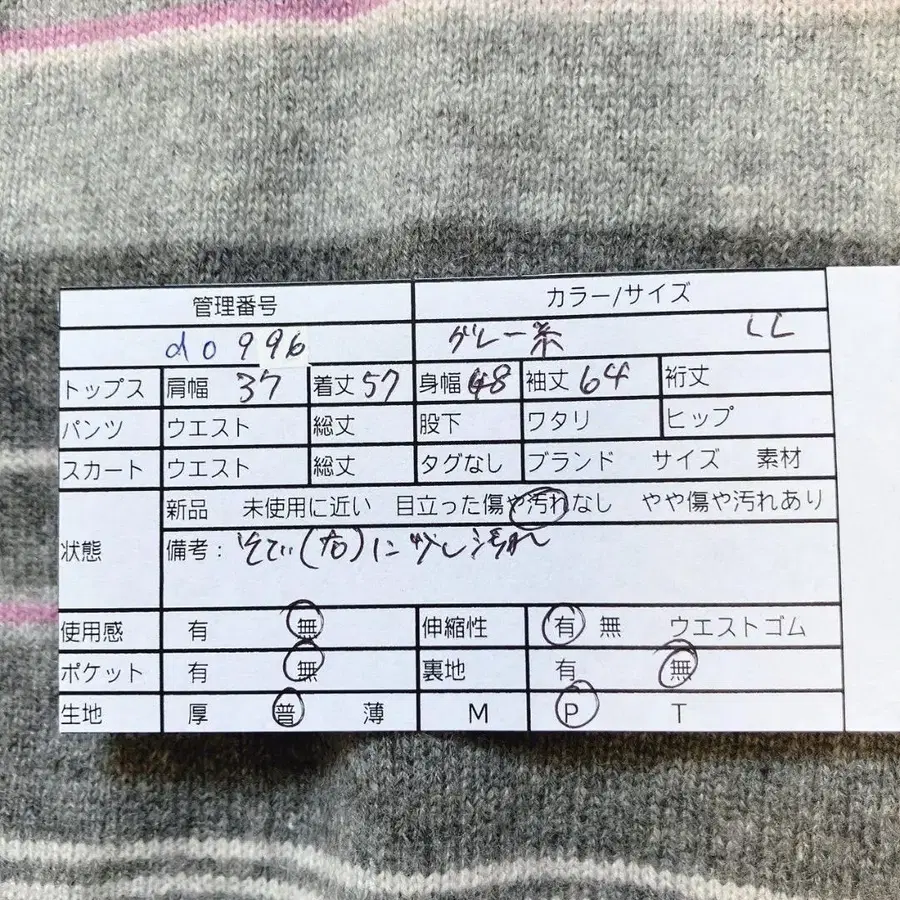 管理番号 カラー/サイズ
do996 グレー系 LL
トップス 肩幅 37 着丈 57 身幅 48 袖丈 64 裄丈
パンツ ウエスト 総丈 股下 ワタリ ヒップ
スカート ウエスト 総丈 タグなし ブランド サイズ 素材
新品 未使用に近い 目立った傷や汚れなし やや傷や汚れあり
状態 備考: そで(右)に少し汚れ
使用感 有 無 伸縮性 有 無 ウエストゴム
ポケット 有 無 裏地 有 無
生地 厚 普 薄 M P T